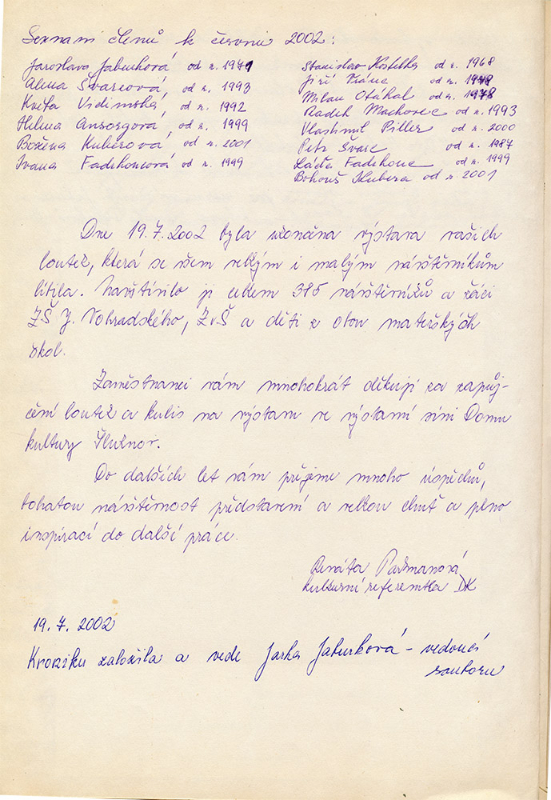 Seznam členů k červnu 2002:
Jaroslava Jaburková od r. 1971
Alena Švarcová, od r. 1993
Květa Vidimská, od r. 1992
Helena Ansorgová, od r. 1999
Božena Kuberová od r. 2001
Ivana Fadrhoncová od r. 1999
Stanislav Kostelka od r. 1968
Jiří Vrána od r. 1978
Milan Otáhal od r. 1978
Radek Machovec od r. 1993
Vlastimil Piller od r. 2000
Petr Švarc od r. 1987
Láďa Fadrhonc od r. 1999
Bohouš Kubera od r. 2001
Dne 19.7.2002 byla ukončena výstava vašich
loutek, která se všem velkým i malým návštěvníkům
líbila. Navštívilo ji celkem 315 návštěvníků a žáci
ZŠ J. Vohradského, ZvŠ a děti z obou mateřských
škol.
Zaměstnanci vám mnohokrát děkují za zapůj-
čení loutek a kulis na výstavu ve výstavní síni Domu
kultury Šluknov.
Do dalších let vám přejeme mnoho úspěchů,
bohatou návštěvnost představení a velkou chuť a plno
inspirací do další práce.
Renáta Parmanová
kulturní referentka DK
19.7.2002
Kroniku založila a vede Jarka Jaburková - vedoucí
souboru